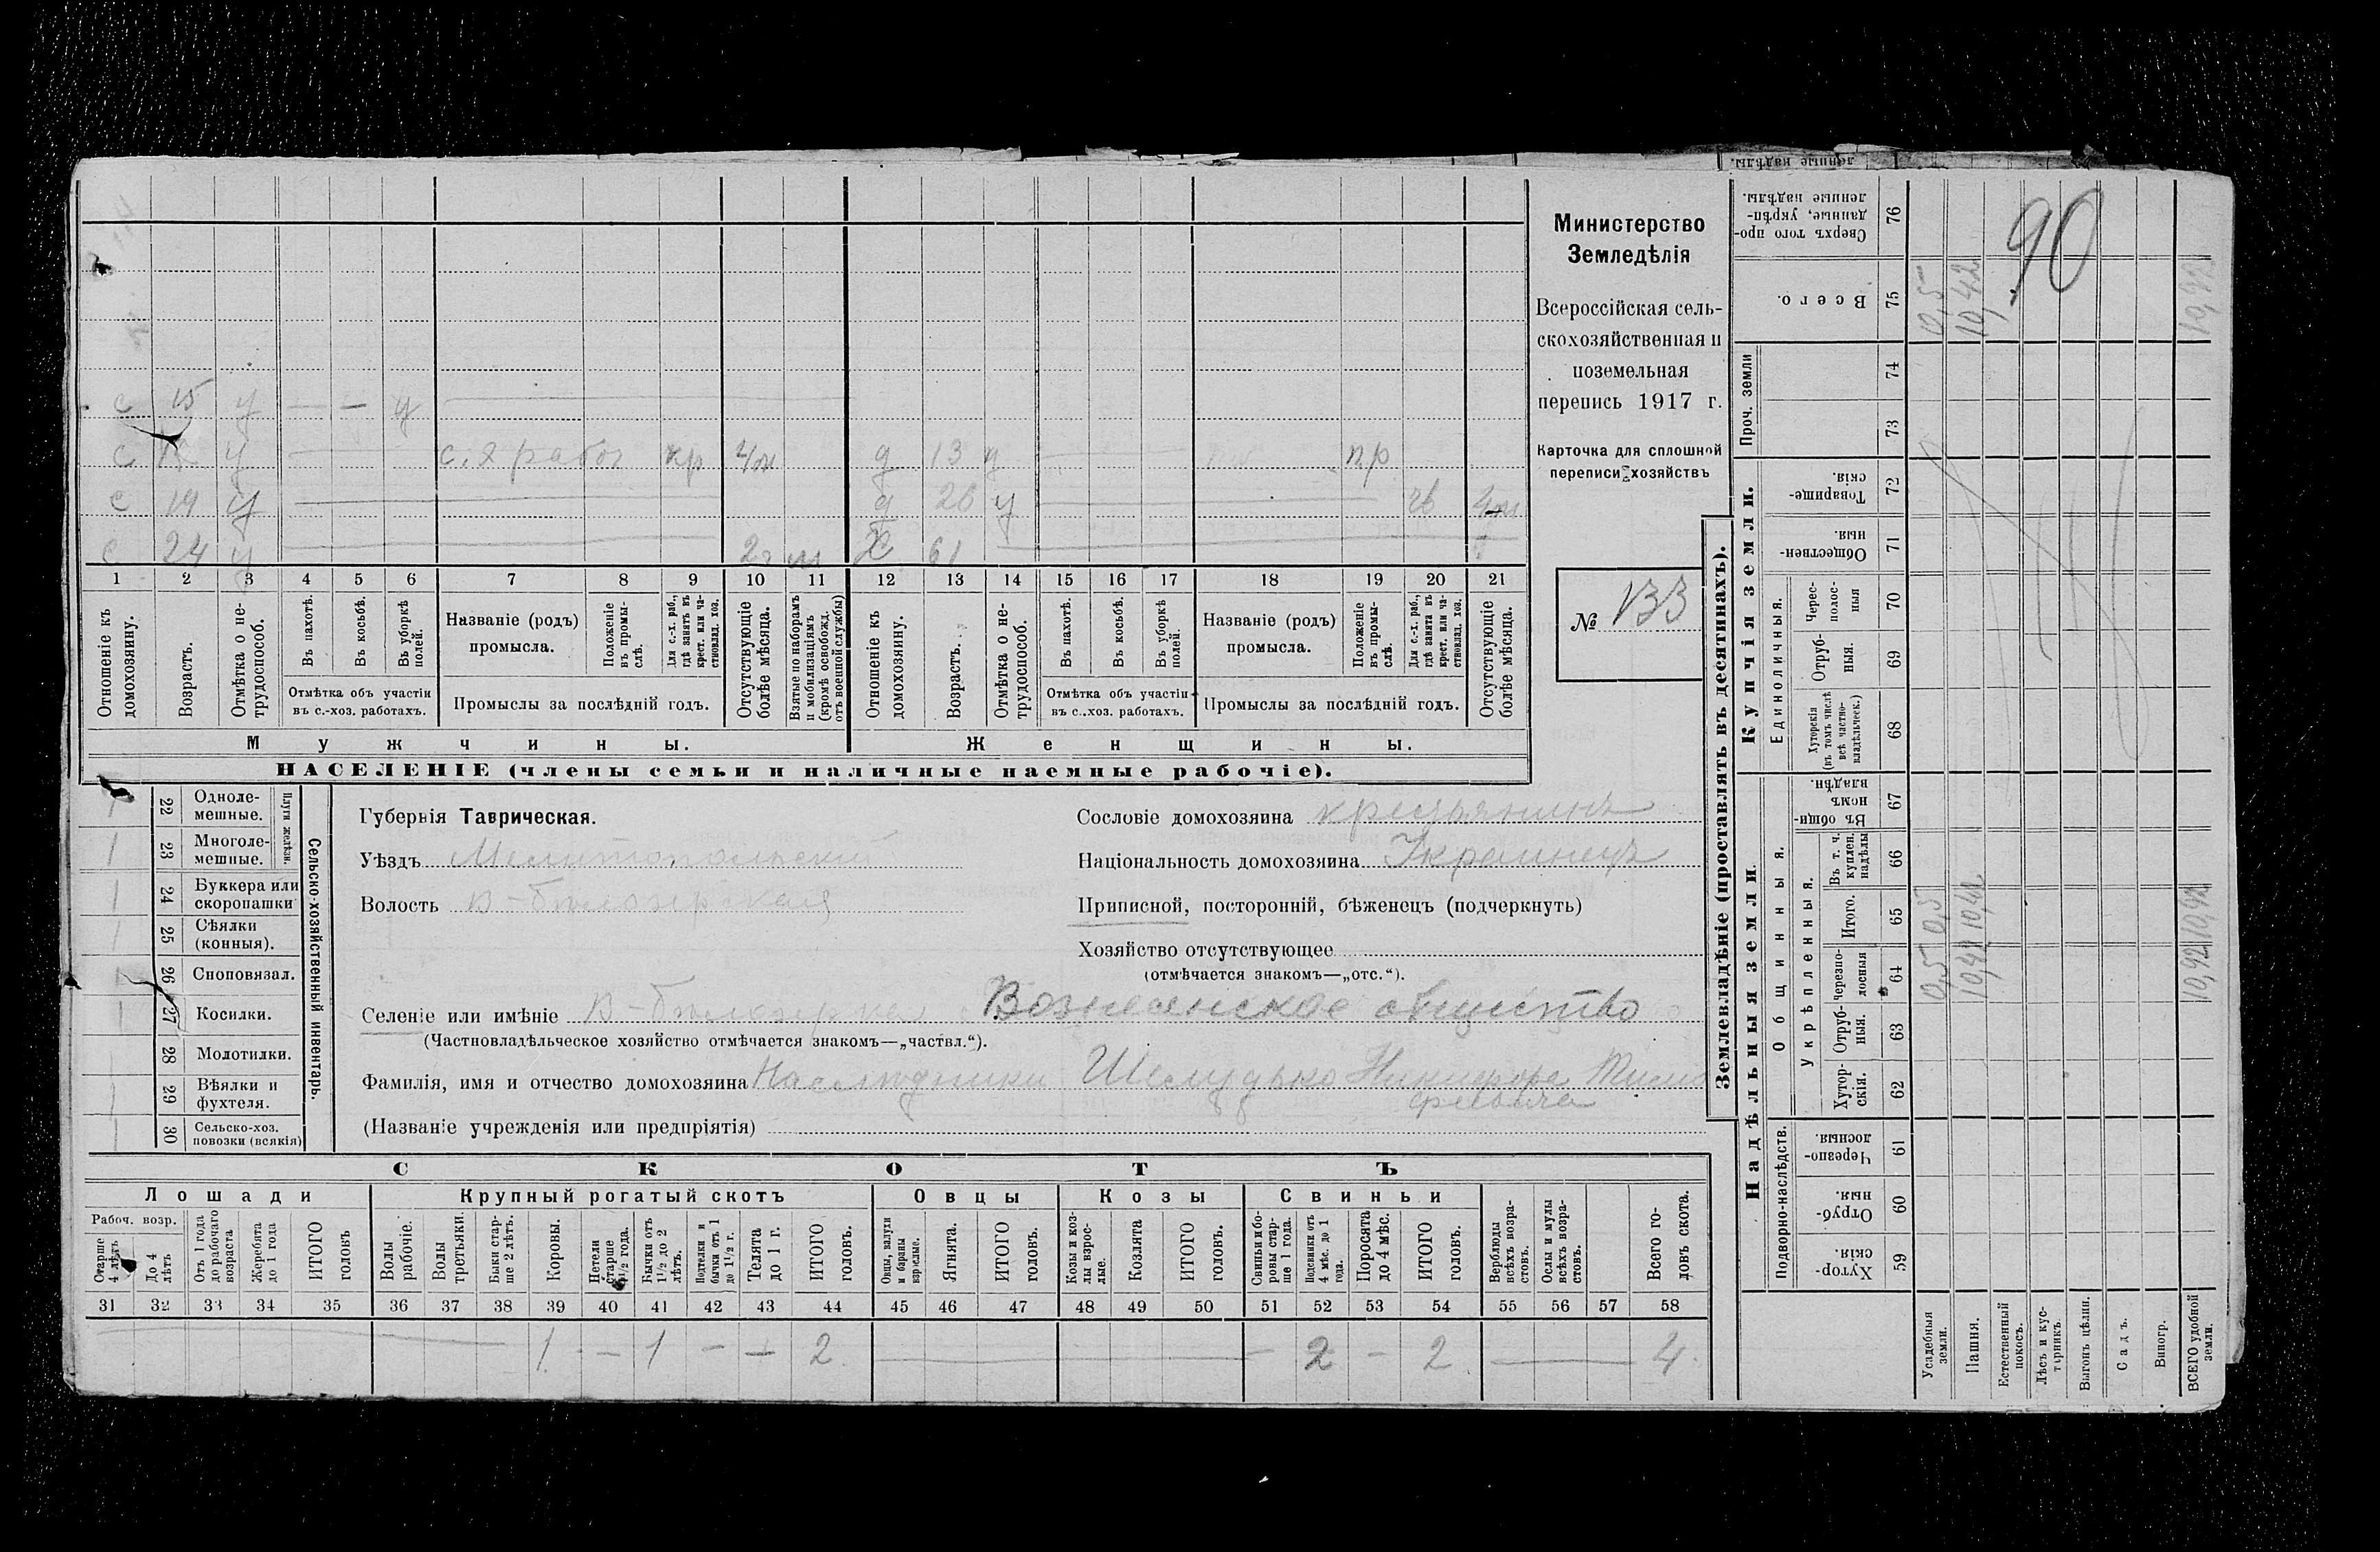 Министерство
Земледѣлія
Всероссійская сель-
скохозяйственная и
поземельная
перепись 1917 г.
Карточка для сплошной
переписи хозяйствъ
№ 133
90
с 15 у — — у
с у с.х работ кр 4м д 13 у пр
с 19 у д 26 у 4м
с 24 у 2г м Ж 61
1 2 3 4 5 6 7 8 9 10 11 12 13 14 15 16 17 18 19 20 21
Отношеніе къ домохозяину.
Возрастъ.
Отмѣтка о не-трудоспособ.
Въ пахотѣ.
Въ косьбѣ.
Въ уборкѣ полей.
Отмѣтка объ участіи въ с.-хоз. работахъ.
Названіе (родъ) промысла.
Положеніе въ промы-слѣ.
Для с.-х. раб., гдѣ занятъ въ крест. или ча-стновлад. хоз.
Промыслы за послѣдній годъ.
Отсутствующіе болѣе мѣсяца.
Взятые по наборамъ и мобилизаціямъ (кромѣ освобожд. отъ военной службы)
Отношеніе къ домохозяину.
Возрастъ.
Отмѣтка о не-трудоспособ.
Въ пахотѣ.
Въ косьбѣ.
Въ уборкѣ полей.
Отмѣтка объ участіи въ с.-хоз. работахъ.
Названіе (родъ) промысла.
Положеніе въ промы-слѣ.
Для с.-х. раб., гдѣ занята въ крест. или ча-стновлад. хоз.
Промыслы за послѣдній годъ.
Отсутствующіе болѣе мѣсяца.
Мужчины. Женщины.
НАСЕЛЕНІЕ (члены семьи и наличные наемные рабочіе).
22 Одноле-мешные.
23 Многоле-мешные.
Плуги желѣзн.
24 Буккера или скоропашки
25 Сѣялки (конныя).
26 Сноповязал.
27 Косилки.
28 Молотилки.
29 Вѣялки и фухтеля.
30 Сельско-хоз. повозки (всякія)
Сельско-хозяйственный инвентарь.
Губернія Таврическая.
Уѣздъ Мелитопольский
Волость В-бѣлозерская
Сословіе домохозяина крестьянинъ
Національность домохозяина Украинецъ
Приписной, посторонній, бѣженецъ (подчеркнуть)
Хозяйство отсутствующее
(отмѣчается знакомъ—„отс.“).
Селеніе или имѣніе В-бѣлозерка Вознесенское общество
(Частновладѣльческое хозяйство отмѣчается знакомъ—„частвл.“).
Фамилія, имя и отчество домохозяина Наслѣдники Шелудько Никифора Тимо
феевича
(Названіе учрежденія или предпріятія)
СКОТЪ
Лошади Крупный рогатый скотъ Овцы Козы Свиньи
Рабоч. возр.
Старше 4 лѣтъ
До 4 лѣтъ
Отъ 1 года до рабочаго возраста
Жеребята до 1 года
ИТОГО головъ
Волы рабочіе.
Волы третьяки.
Быки стар-ше 2 лѣтъ.
Коровы.
Нетели старше 1½ года.
Бычки отъ 1½ до 2 лѣтъ.
Подтелки и бычки отъ 1 до 1½ г.
Телята до 1 г.
ИТОГО головъ.
Овцы, валухи и бараны взрослые.
Ягнята.
ИТОГО головъ.
Козы и коз-лы взрос-лые.
Козлята
ИТОГО головъ.
Свиньи и бо-ровы стар-ше 1 года.
Подсвинки отъ 4 мѣс. до 1 года.
Поросята до 4 мѣс.
ИТОГО головъ.
Верблюды всѣхъ возра-стовъ.
Ослы и мулы всѣхъ возра-стовъ.
Всего го-ловъ скота.
31 32 33 34 35 36 37 38 39 40 41 42 43 44 45 46 47 48 49 50 51 52 53 54 55 56 57 58
1 — 1 — — 2 — 2 — 2 — 4
Землевладѣніе (проставлять въ десятинахъ).
Надѣльныя земли. Купчія земли. Проч. земли
Подворно-наслѣдств.
Общинныя.
Укрѣпленныя.
Единоличныя.
Хутор-скія. 59
Отруб-ныя. 60
Черезпо-лосныя. 61
Хутор-скія. 62
Отруб-ныя. 63
черезпо-лосныя 64
Итого. 65
Въ т. ч. куплен. надѣлы 66
Въ общин-номъ владѣн. 67
Хуторскія (въ томъ числѣ всѣ частно-владѣльческ.) 68
Отруб-ныя. 69
Черес-полос-ныя 70
Обществен-ныя. 71
Товарище-скія. 72
73
74
Всего. 75
Сверхъ того про-данные, укрѣп-ленные надѣлы. 76
ленные надѣлы.
Усадебныя земли. 0,5 0,5 0,5
Пашня. 10,42 10,42 10,42
Естественный покосъ.
Лѣсъ и кус-тарникъ.
Выгонъ цѣлин.
Садъ.
Виногр.
ВСЕГО удобной земли. 10,92 10,92 10,92